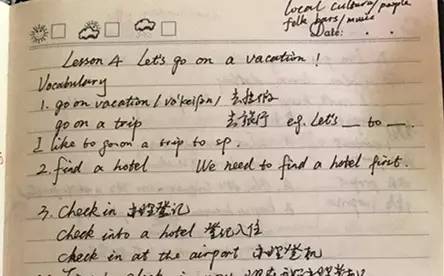 local culture/people
folk bars/music
Date: . .
Lesson 4 Let's go on a vacation!
Vocabulary
1. go on vacation /və'keiʃən/ 去度假
go on a trip 去旅行 eg. Let's __ to __.
I like to go on a trip to sp.
2. find a hotel We need to find a hotel first.
3. check in 办理登记
check into a hotel 登记入住
check in at the airport 办理登机